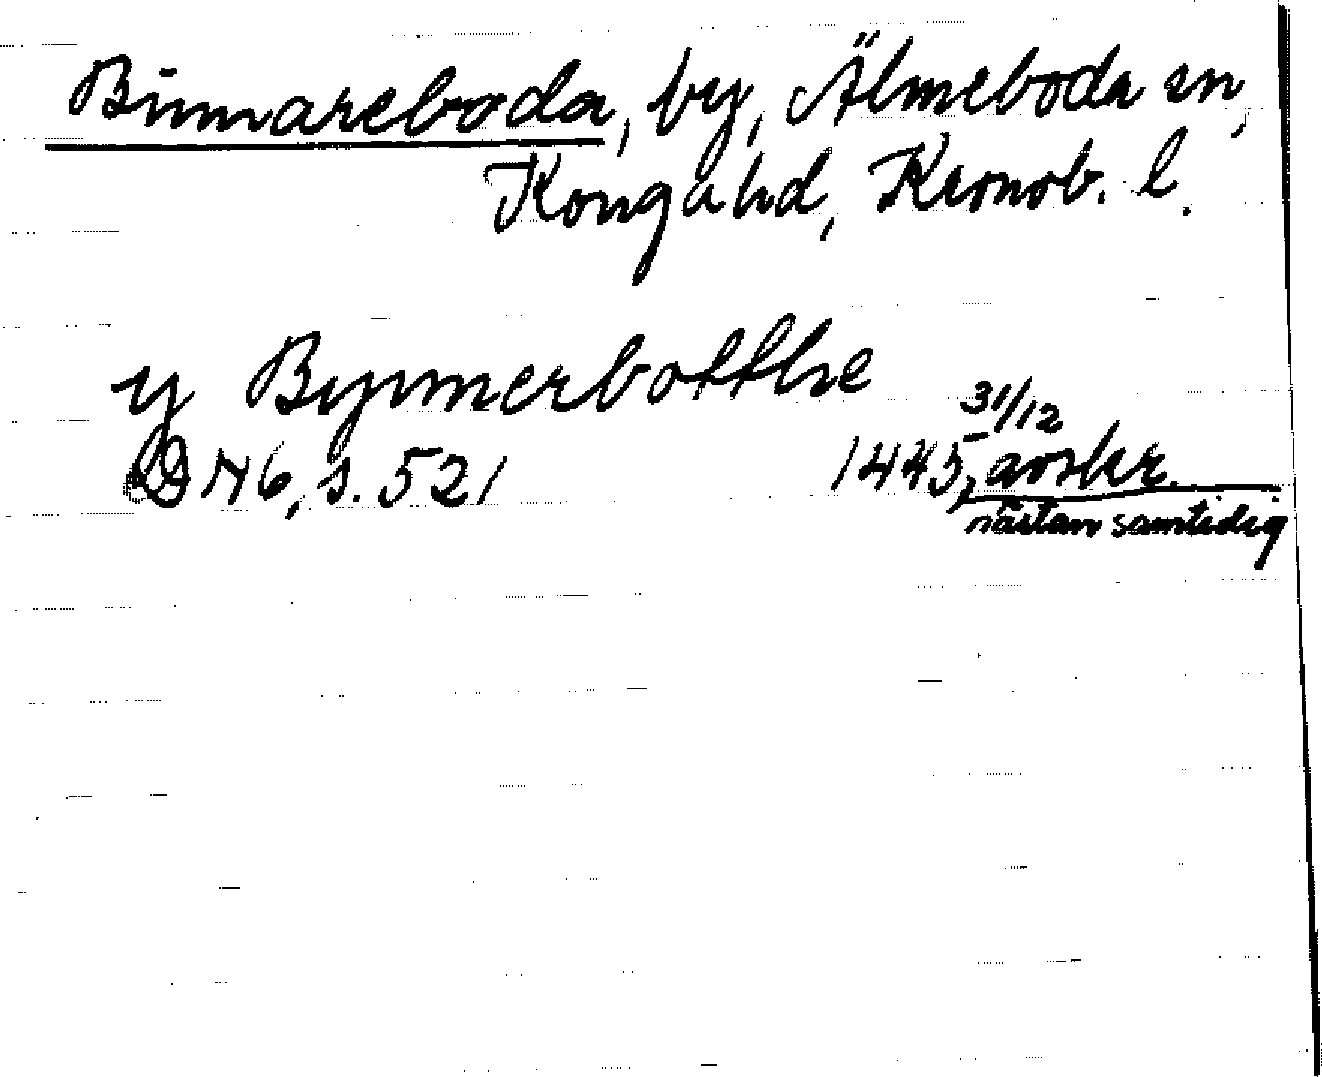 Binnareboda, by, Älmeboda sn,
Konga hd, Kronob. l.
y Bynnerbotthe
DN 6, s. 521 1445 31/12, avskr.
nästan samtidig